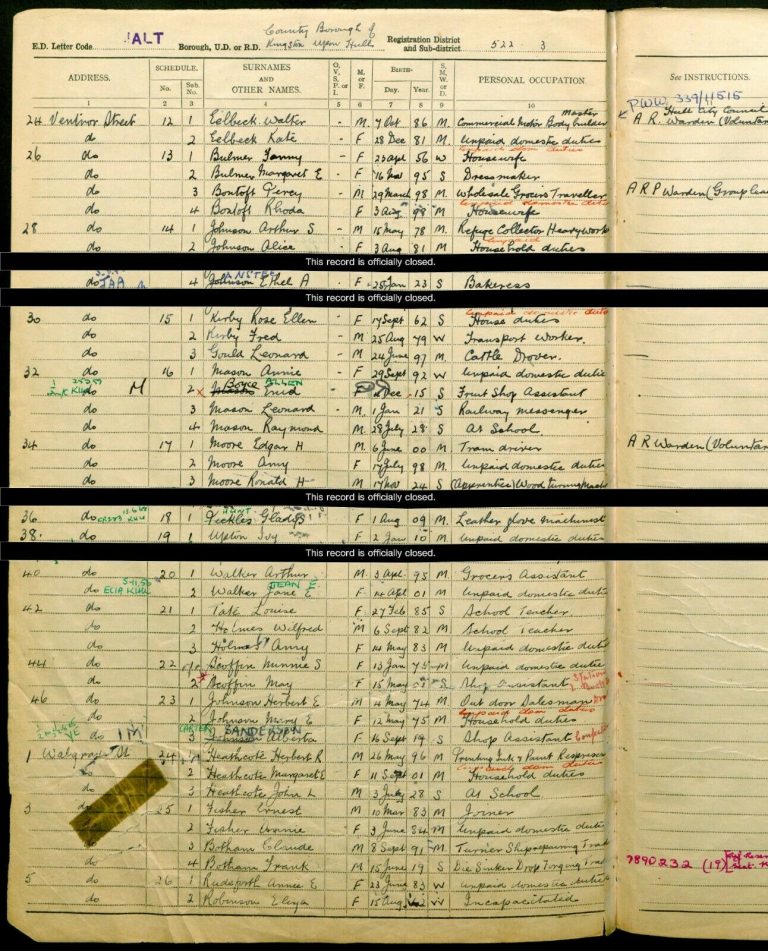 E.D. Letter Code ALT Borough, U.D. or R.D. County Borough of Kingston upon Hull Registration District and Sub-district 522 3
ADDRESS. SCHEDULE. No. Sub. No. SURNAMES AND OTHER NAMES. O., V., S., P. or I. M. or F. BIRTH— Day. Year. S., M., W. or D. PERSONAL OCCUPATION. See INSTRUCTIONS.
1 2 3 4 5 6 7 8 9 10
PWW 339/11515
Master Hull City Council
24 Ventnor Street 12 1 Eelbeck Walter - M 7 Oct 86 M Commercial Motor Body builder A R. Warden (Volunta
do 2 Eelbeck Kate - F 28 Dec 81 M Unpaid domestic duties
unpaid dom duties
26 do 13 1 Bulmer Fanny - F 23 Apl 56 W Housewife
do 2 Bulmer Margaret E - F 16 95 S Dressmaker
do 3 Bontoft Percy - M 29 March 98 M Wholesale Grocers Traveller A R P Warden (Group lea
unpaid domestic duties
do 4 Bontoft Rhoda F 3 Aug 98 M Housewife
28 do 14 1 Johnson Arthur S - M 15 May 78 M Refuge Collector Heavy work
unpaid
do 2 Johnson Alice F 3 Aug 81 M Household duties
This record is officially closed.
ANSTEE
do 4 Johnson Ethel A - F 25 Jan 23 S Bakeress
This record is officially closed.
unpaid domestic duties
30 do 15 1 Kirby Rose Ellen - F 17 Sept 62 S House duties
do 2 Kirby Fred - M 25 Aug 79 W Transport Worker.
do 3 Gould Leonard - M 24 June 97 M. Cattle Drover.
32 do 16 1 Mason Annie - F 29 Sept 92 W Unpaid domestic dutie
Boyce ALLEN
do M 2 Enid F Dec 15 S Fruit Shop Assistant
do 3 Mason Leonard - M 1 Jan 21 S Railway messenger
do 4 Mason Raymond M 28 July 28 S At School.
34 do 17 1 Moore Edgar H M. 6 June 00 M Tram driver A R Warden (Voluntar
do 2 Moore Amy F 17 July 98 M. Unpaid domestic duties
do 3 Moore Ronald H M 17 Nov 24 S (Apprentice) Wood turning Mach
This record is officially closed.
HUNT
36 do 18 1 Pickles Gladys F 1 Aug 09 M. Leather glove machinist
38. do 19 1 Upton Ivy F 2 Jan 10 M Unpaid domestic duties
This record is officially closed.
40 do 20 1 Walker Arthur M. 3 Apl 95 M Grocers Assistant
JEAN E.
do 2 Walker Jane E F 14 Apl 01 M Unpaid domestic duties
42 do 21 1 Tate Louise F 27 Feb 85 S School Teacher
do 2 Holmes Wilfred M 6 Sept 82 M School Teacher
do 3 Holmes Amy F 14 May 83 M Unpaid domestic duties
44 do 22 1 Scoffin Minnie S F 13 Jan 75 M Unpaid domestic duties
do 2 Scoffin May F 15 May S Shop Assistant
46 do 23 1 Johnson Herbert E M 4 May 74 M Out door Salesman
unpaid dom duties
do 2 Johnson Mary E F 12 May 75 M Household duties
CARTER SANDERSON
do 3 Johnson Alberta F 16 Sept 19 S Shop Assistant
1 Walgrave St 24 1 Heathcote Herbert R M 26 May 96 M Printing Ink & Paint Represen
unpaid dom duties
do 2 Heathcote Margaret E F 11 Sept 01 M Household duties
do 3 Heathcote John L M 3 July 28 S At School
3 do 25 1 Fisher Ernest M 10 Mar 83 M Joiner
do 2 Fisher Annie F 3 June 84 M Unpaid domestic duties
do 3 Botham Claude M 8 Sept 91 M Turner Shiprepairing Trad
do 4 Botham Frank M 15 June 19 S Die Sinker Drop Forging Trad 7890232 (19)
5 do 26 1 Annie E F 23 June 83 W Unpaid domestic duties
do 2 Robinson Eliza F 15 Aug W Incapacitated